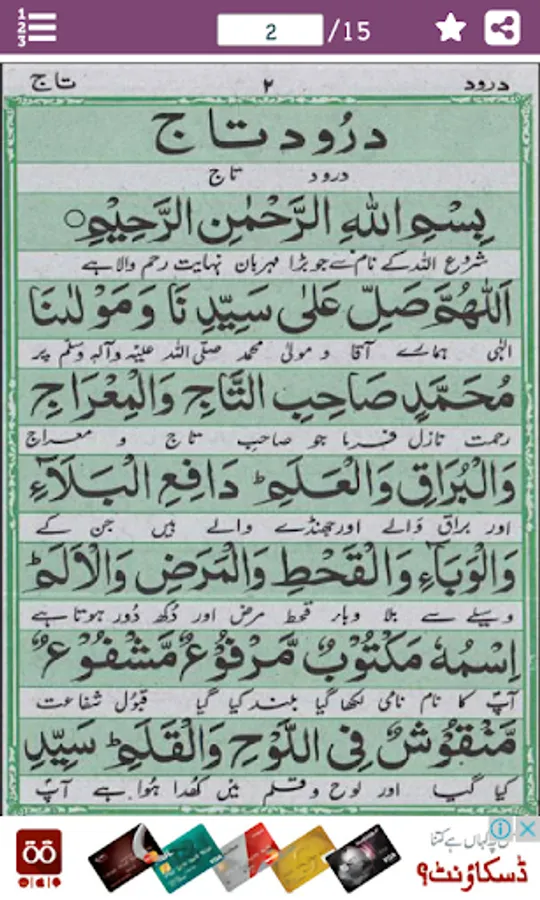 2 /15
درود ٢ تاج
دُرُود تاج
درود تاج
بِسْمِ اللهِ الرَّحْمٰنِ الرَّحِيْمِ
شروع اللہ کے نام سے جو بڑا مہربان نہایت رحم والا ہے
اَللّٰهُمَّ صَلِّ عَلٰى سَيِّدِنَا وَمَوْلٰىنَا
الٰہی ہمارے آقا و مولیٰ محمد صلّی اللہ علیہ وآلہ وسلّم پر
مُحَمَّدٍ صَاحِبِ التَّاجِ وَالْمِعْرَاجِ
رحمت نازل فرما جو صاحب تاج و معراج
وَالْبُرَاقِ وَالْعَلَمِ ؕ دَافِعِ الْبَلَآءِ
اور براق والے اور جھنڈے والے ہیں جن کے
وَالْوَبَآءِ وَالْقَحْطِ وَالْمَرَضِ وَالْاَلَمِ ؕ
وسیلے سے بلا وبار قحط مرض اور دُکھ دُور ہوتا ہے
اِسْمُهٗ مَكْتُوْبٌ مَّرْفُوْعٌ مَّشْفُوْعٌ
آپؐ کا نام نامی لکھا گیا بلند کیا گیا قبول شفاعت
مَّنْقُوْشٌ فِى اللَّوْحِ وَالْقَلَمِ ؕ سَيِّدِ
کیا گیا اور لوح و قلم میں کھدا ہوا ہے آپؐ
کہاں ہے کتنا
ڈسکاؤنٹ؟